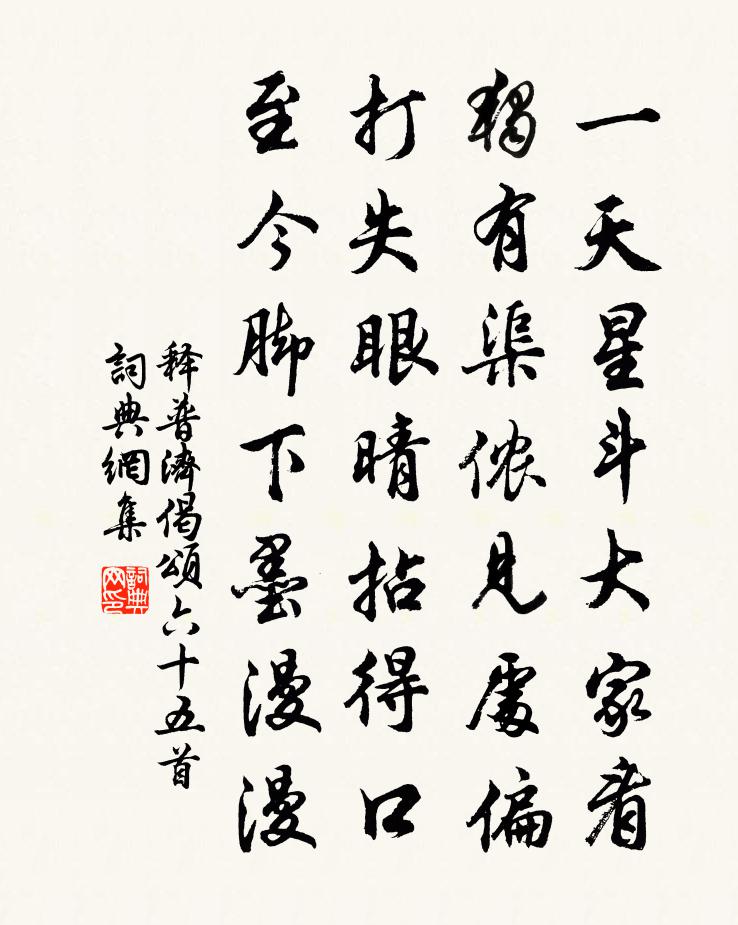 一天星斗大家看
獨有渠侬見處偏
打失眼睛拈得口
至今脚下墨漫漫
释普濟偈頌六十五首
詞典網集
詞典网印